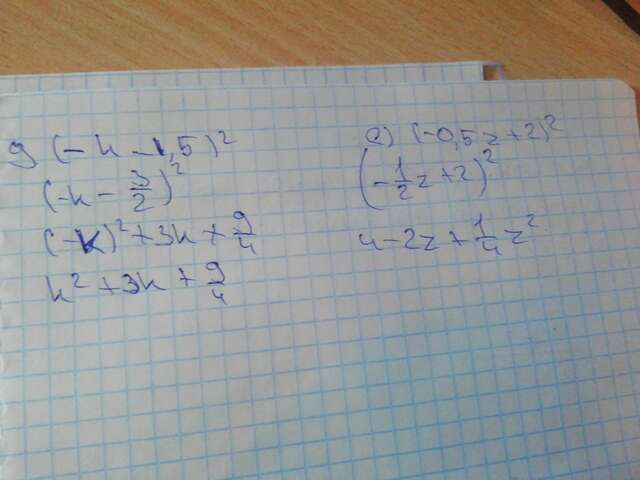 д (-k-1,5)²
(-k-3/2)²
(-k)²+3k+9/4
k²+3k+9/4
е) (-0,5z+2)²
(-1/2z+2)²
4-2z+1/4z²